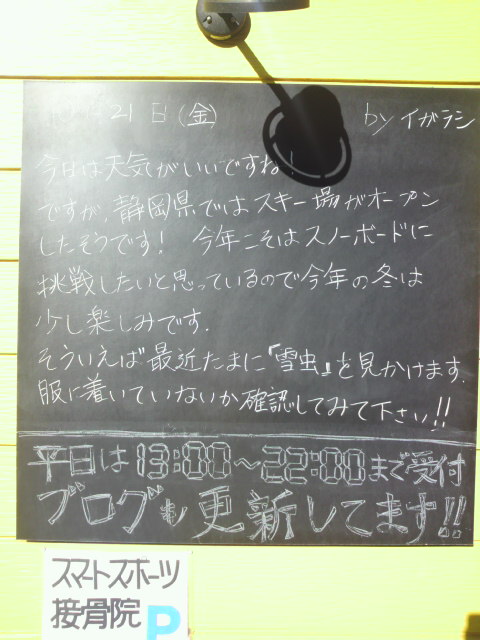 21日(金) by イガラシ
今日は天気がいいですね!
ですが、静岡県ではスキー場がオープン
したそうです! 今年こそはスノーボードに
挑戦したいと思っているので今年の冬は
少し楽しみです.
そういえば最近たまに『雪虫』を見かけます.
服に着いていないか確認してみて下さい!!
平日は13:00~22:00まで受付
ブログも更新してます!!
スマートスポーツ
接骨院 P